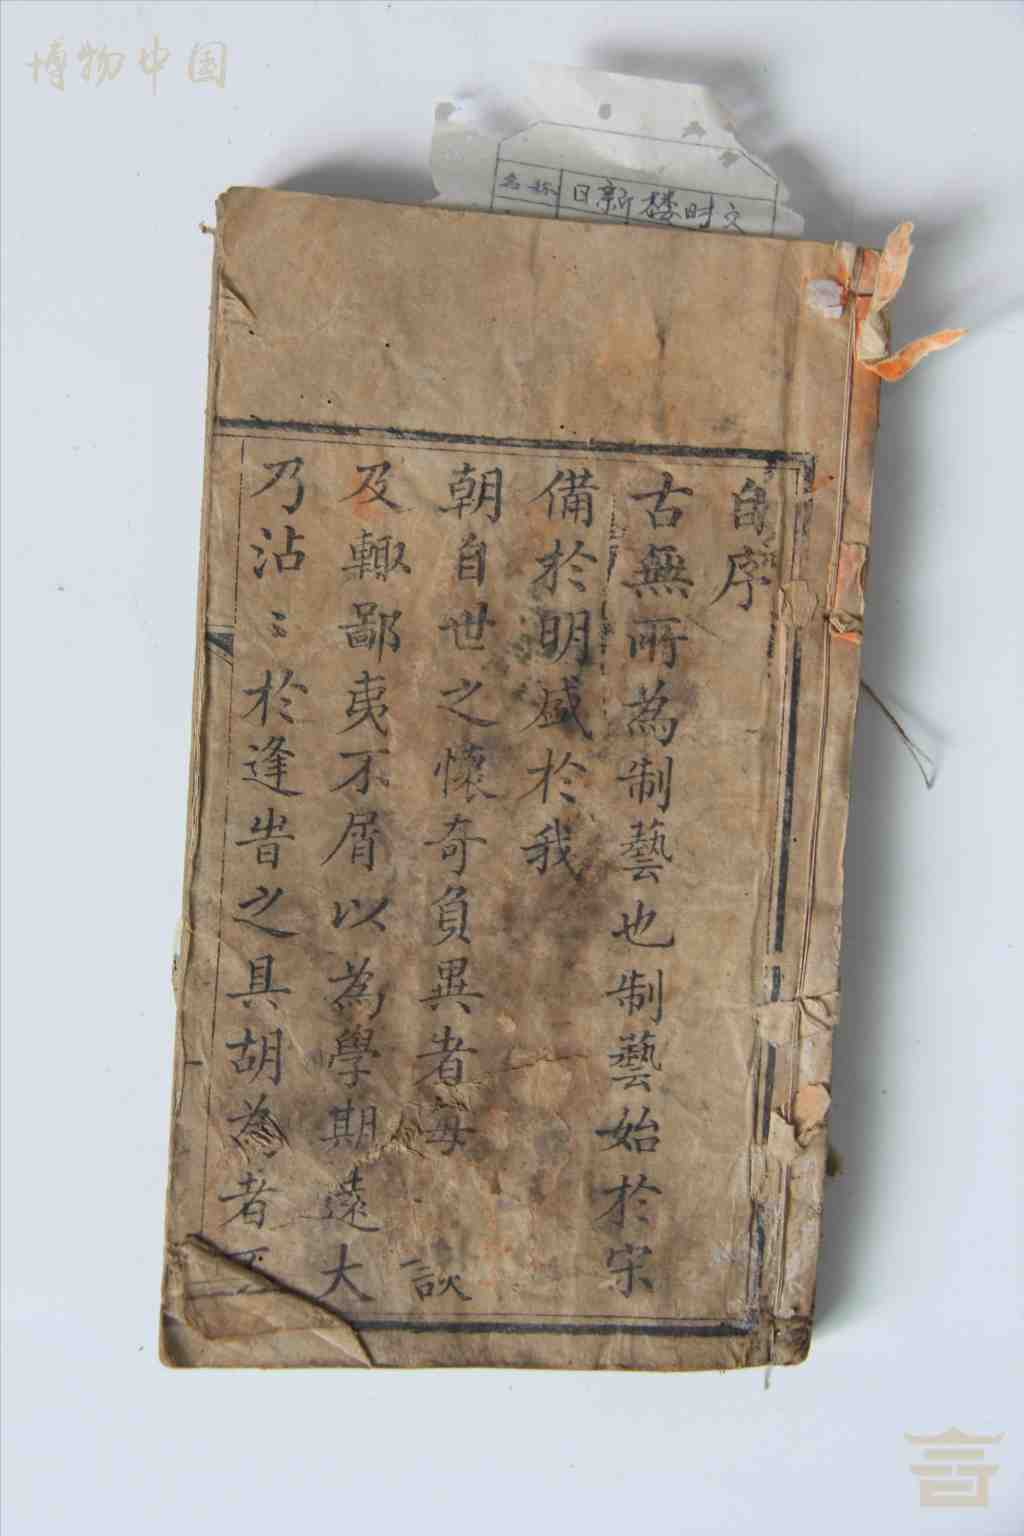 博物中国
名称 日新楼时文
自序
古無所為制藝也制藝始於宋
備於明盛於我
朝自世之懷奇負異者每談
及輙鄙夷不屑以為學期遠大
乃沾〻於逢時之具胡為者不